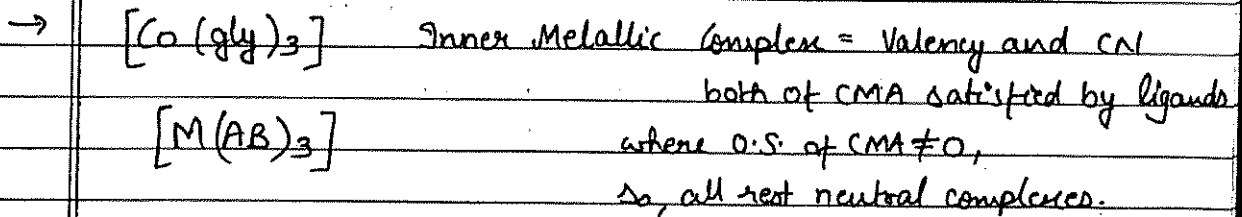 → [Co(gly)₃] Inner Metallic Complex = Valency and CN
both of CMA satisfied by ligands
[M(AB)₃] where O.S. of CMA ≠ 0,
so, all rest neutral complexes.